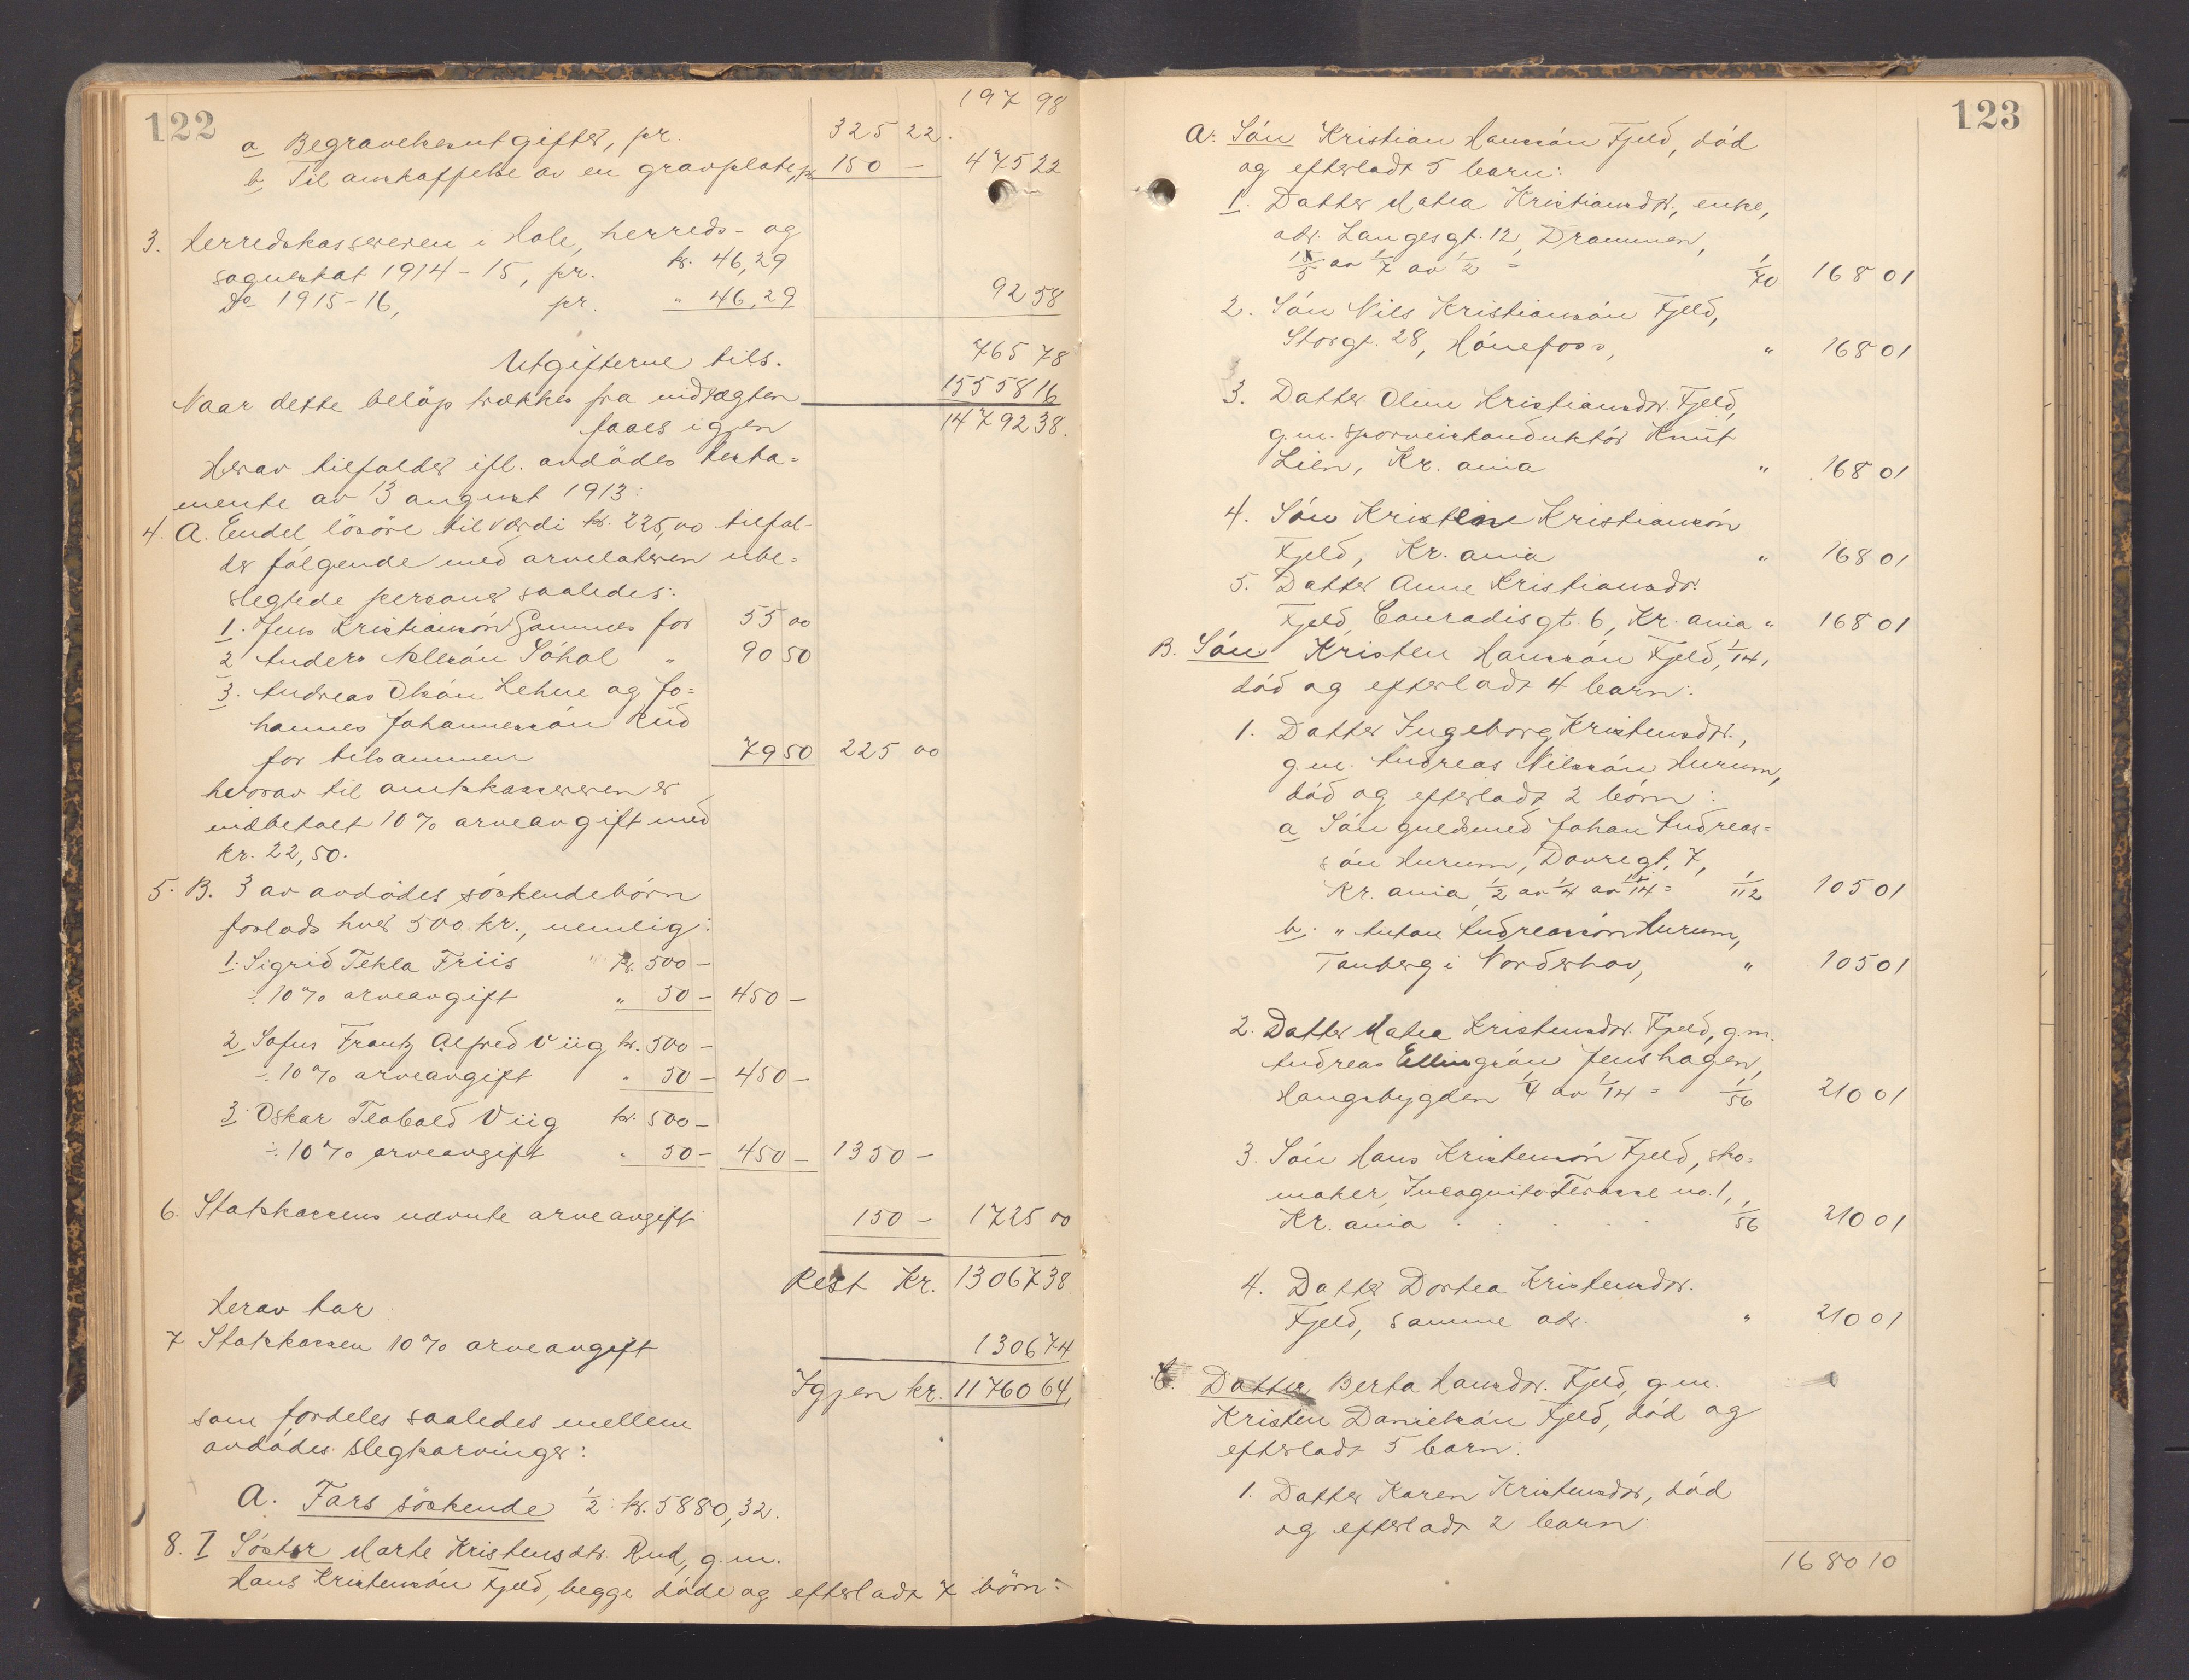 122
197 98
a Begravelsesutgifter, kr. 325 22.
b Til anskaffelse av en gravplate, kr 150 — 475 22
3. Herredskassereren i Hole, herreds- og
sogneskat 1914-15, kr. kr. 46,29
do 1915-16, kr. " 46,29 92 58
Utgifterne tils. 765 78
15558 16
Naar dette beløp trækkes fra indtægten
faaes igjen 14792 38.
Herav tilfalder ifl. avdødes testa-
mente av 13 august 1913:
4. A. Endel løsøre til værdi kr. 225,00 tilfal-
der følgende med arvelateren ube-
slegtede personer saaledes:
1. Jens Kristiansøn Gamnes for 55 00
2 Anders Nilsøn Søhol " 90 50
3. Andreas Olsøn Lehne og Jo-
hannes Johannessøn Rud
for tilsammen 79 50 225 00
hvorav til amtskassereren er
indbetalt 10 % arveavgift med
kr. 22,50.
5. B. 3 av avdødes søskendebørn
forlods hver 500 kr., nemlig:
1. Sigrid Tekla Friis " kr. 500 —
÷ 10 % arveavgift " 50 — 450 —
2 Sofus Frantz Alfred Viig kr. 500 —
÷ 10 % arveavgift " 50 — 450 —
3. Oskar Teobald Viig kr. 500 —
÷ 10 % arveavgift " 50 — 450 — 1350 —
6. Statskassens nævnte arveavgift 150 — 1725 00
Rest Kr. 13067 38
Herav har
7 Statskassen 10 % arveavgift 1306 74
Igjen kr. 11760 64,
som fordeles saaledes mellem
avdødes slegtsarvinger:
A. Fars søskende 1/2: kr. 5880,32.
8. I Søster Marte Kristensdtr. Rud, g.m.
Hans Kristensøn Fjeld, begge døde og efterladt 7 børn:
123
A. Søn Kristian Hanssøn Fjeld, død
og efterladt 5 barn:
1. Datter Matea Kristiansdtr., enke,
adr. Langesgt. 12, Drammen,
1/5 av 1/7 av 1/2 = 1/70 168 01
2. Søn Nils Kristiansøn Fjeld,
Storgt. 28, Hønefoss, " 168 01
3. Datter Oline Kristiansdtr. Fjeld,
g.m. sporveiskonduktør Knut
Lien, Kr.ania " 168 01
4. Søn Kristine Kristiansøn
Fjeld, Kr.ania " 168 01
5. Datter Anne Kristiansdtr.
Fjeld, Conradisgt. 6, Kr.ania " 168 01
B. Søn Kristen Hanssøn Fjeld, 1/14,
død og efterladt 4 barn:
1. Datter Ingeborg Kristensdtr.,
g.m. Andreas Nilssøn Hurum,
død og efterladt 2 børn:
a Søn guldsmed Johan Andreas-
søn Hurum, Dovregt. 7,
Kr.ania, 1/2 av 1/4 av 1/14 = 1/112 105 01
b. " Anton Andreassøn Hurum,
Tanberg i Norderhov, " 105 01
2. Datter Matea Kristensdtr. Fjeld, g.m.
Andreas Ellingsøn Jenshagen,
Haugsbygden 1/4 av 1/14 = 1/56 210 01
3. Søn Hans Kristensøn Fjeld, sko-
maker, Incognito Terasse no. 1,
Kr.ania . . . . . 1/56 210 01
4. Datter Dortea Kristensdtr.
Fjeld, samme adr. " 210 01
C. Datter Berta Hansdtr. Fjeld, g.m.
Kristen Danielsøn Fjeld, død og
efterladt 5 barn:
1. Datter Karen Kristensdtr, død
og efterladt 2 barn:
1680 10